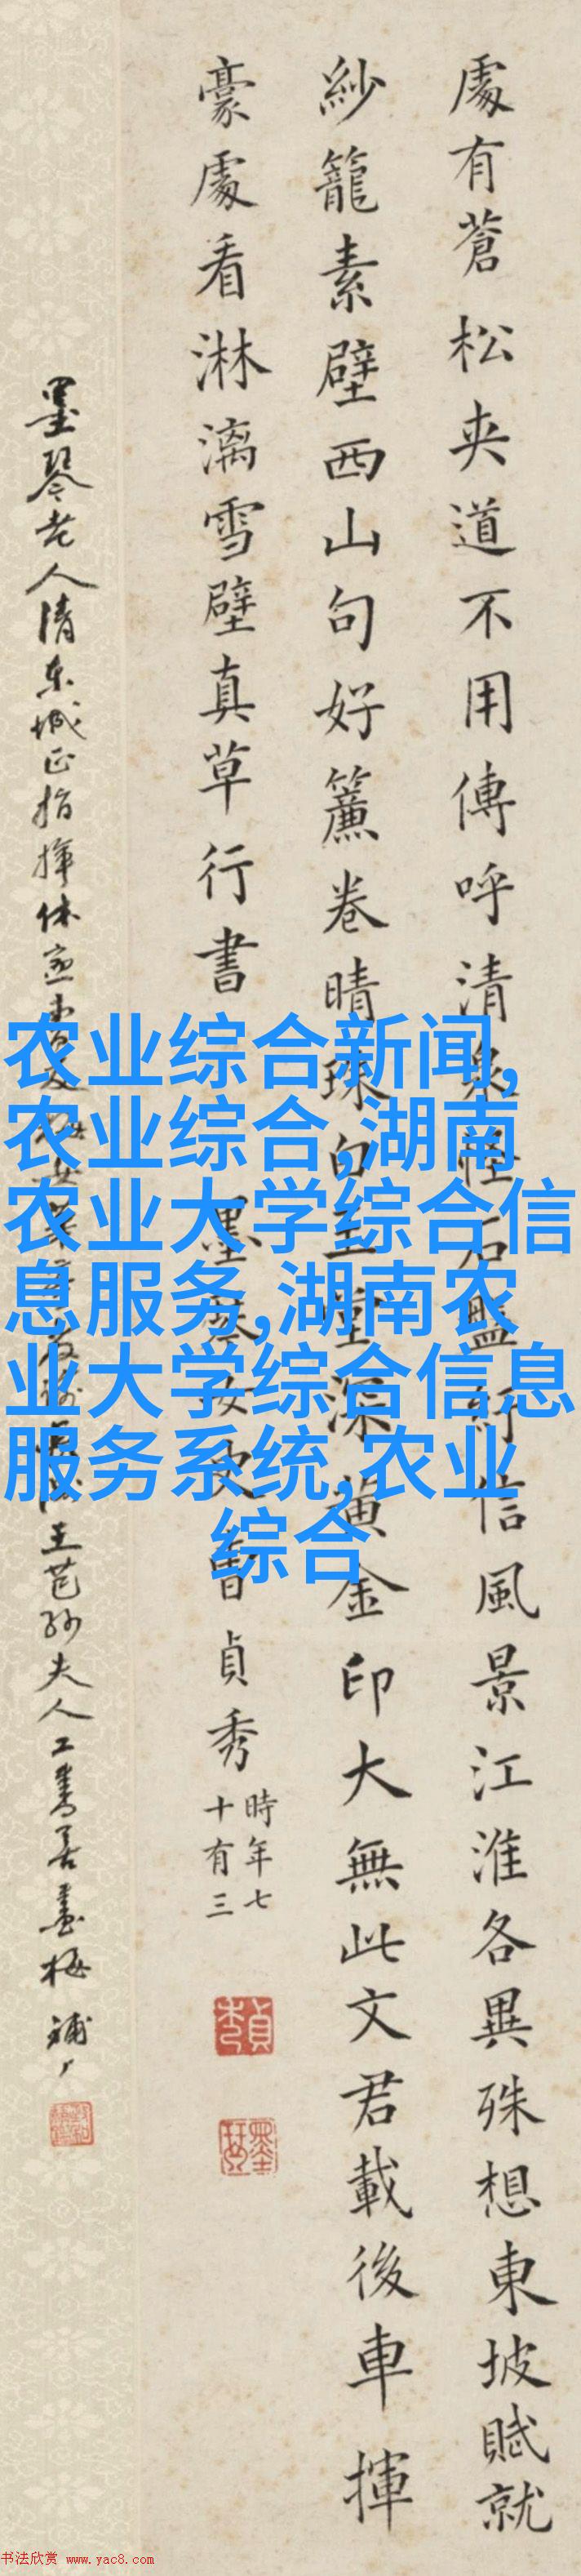 處有蒼松夾道不用傳呼清泉怪石盤紆信風景江淮各異殊想東坡賦就
紗籠素壁西山句好簾卷晴珠白玉堂深黃金印大無此文君載後車揮
豪處看淋漓雪壁真草行書
墨琴女史曹貞秀
時年七
十有三
墨琴老人清東城正指揮
王芑孫夫人工書善畫梅
农业综合新闻,
农业综合,湖南
农业大学综合信
息服务,湖南农
业大学综合信息
服务系统,农业
综合
书法欣赏 www.yac8.com